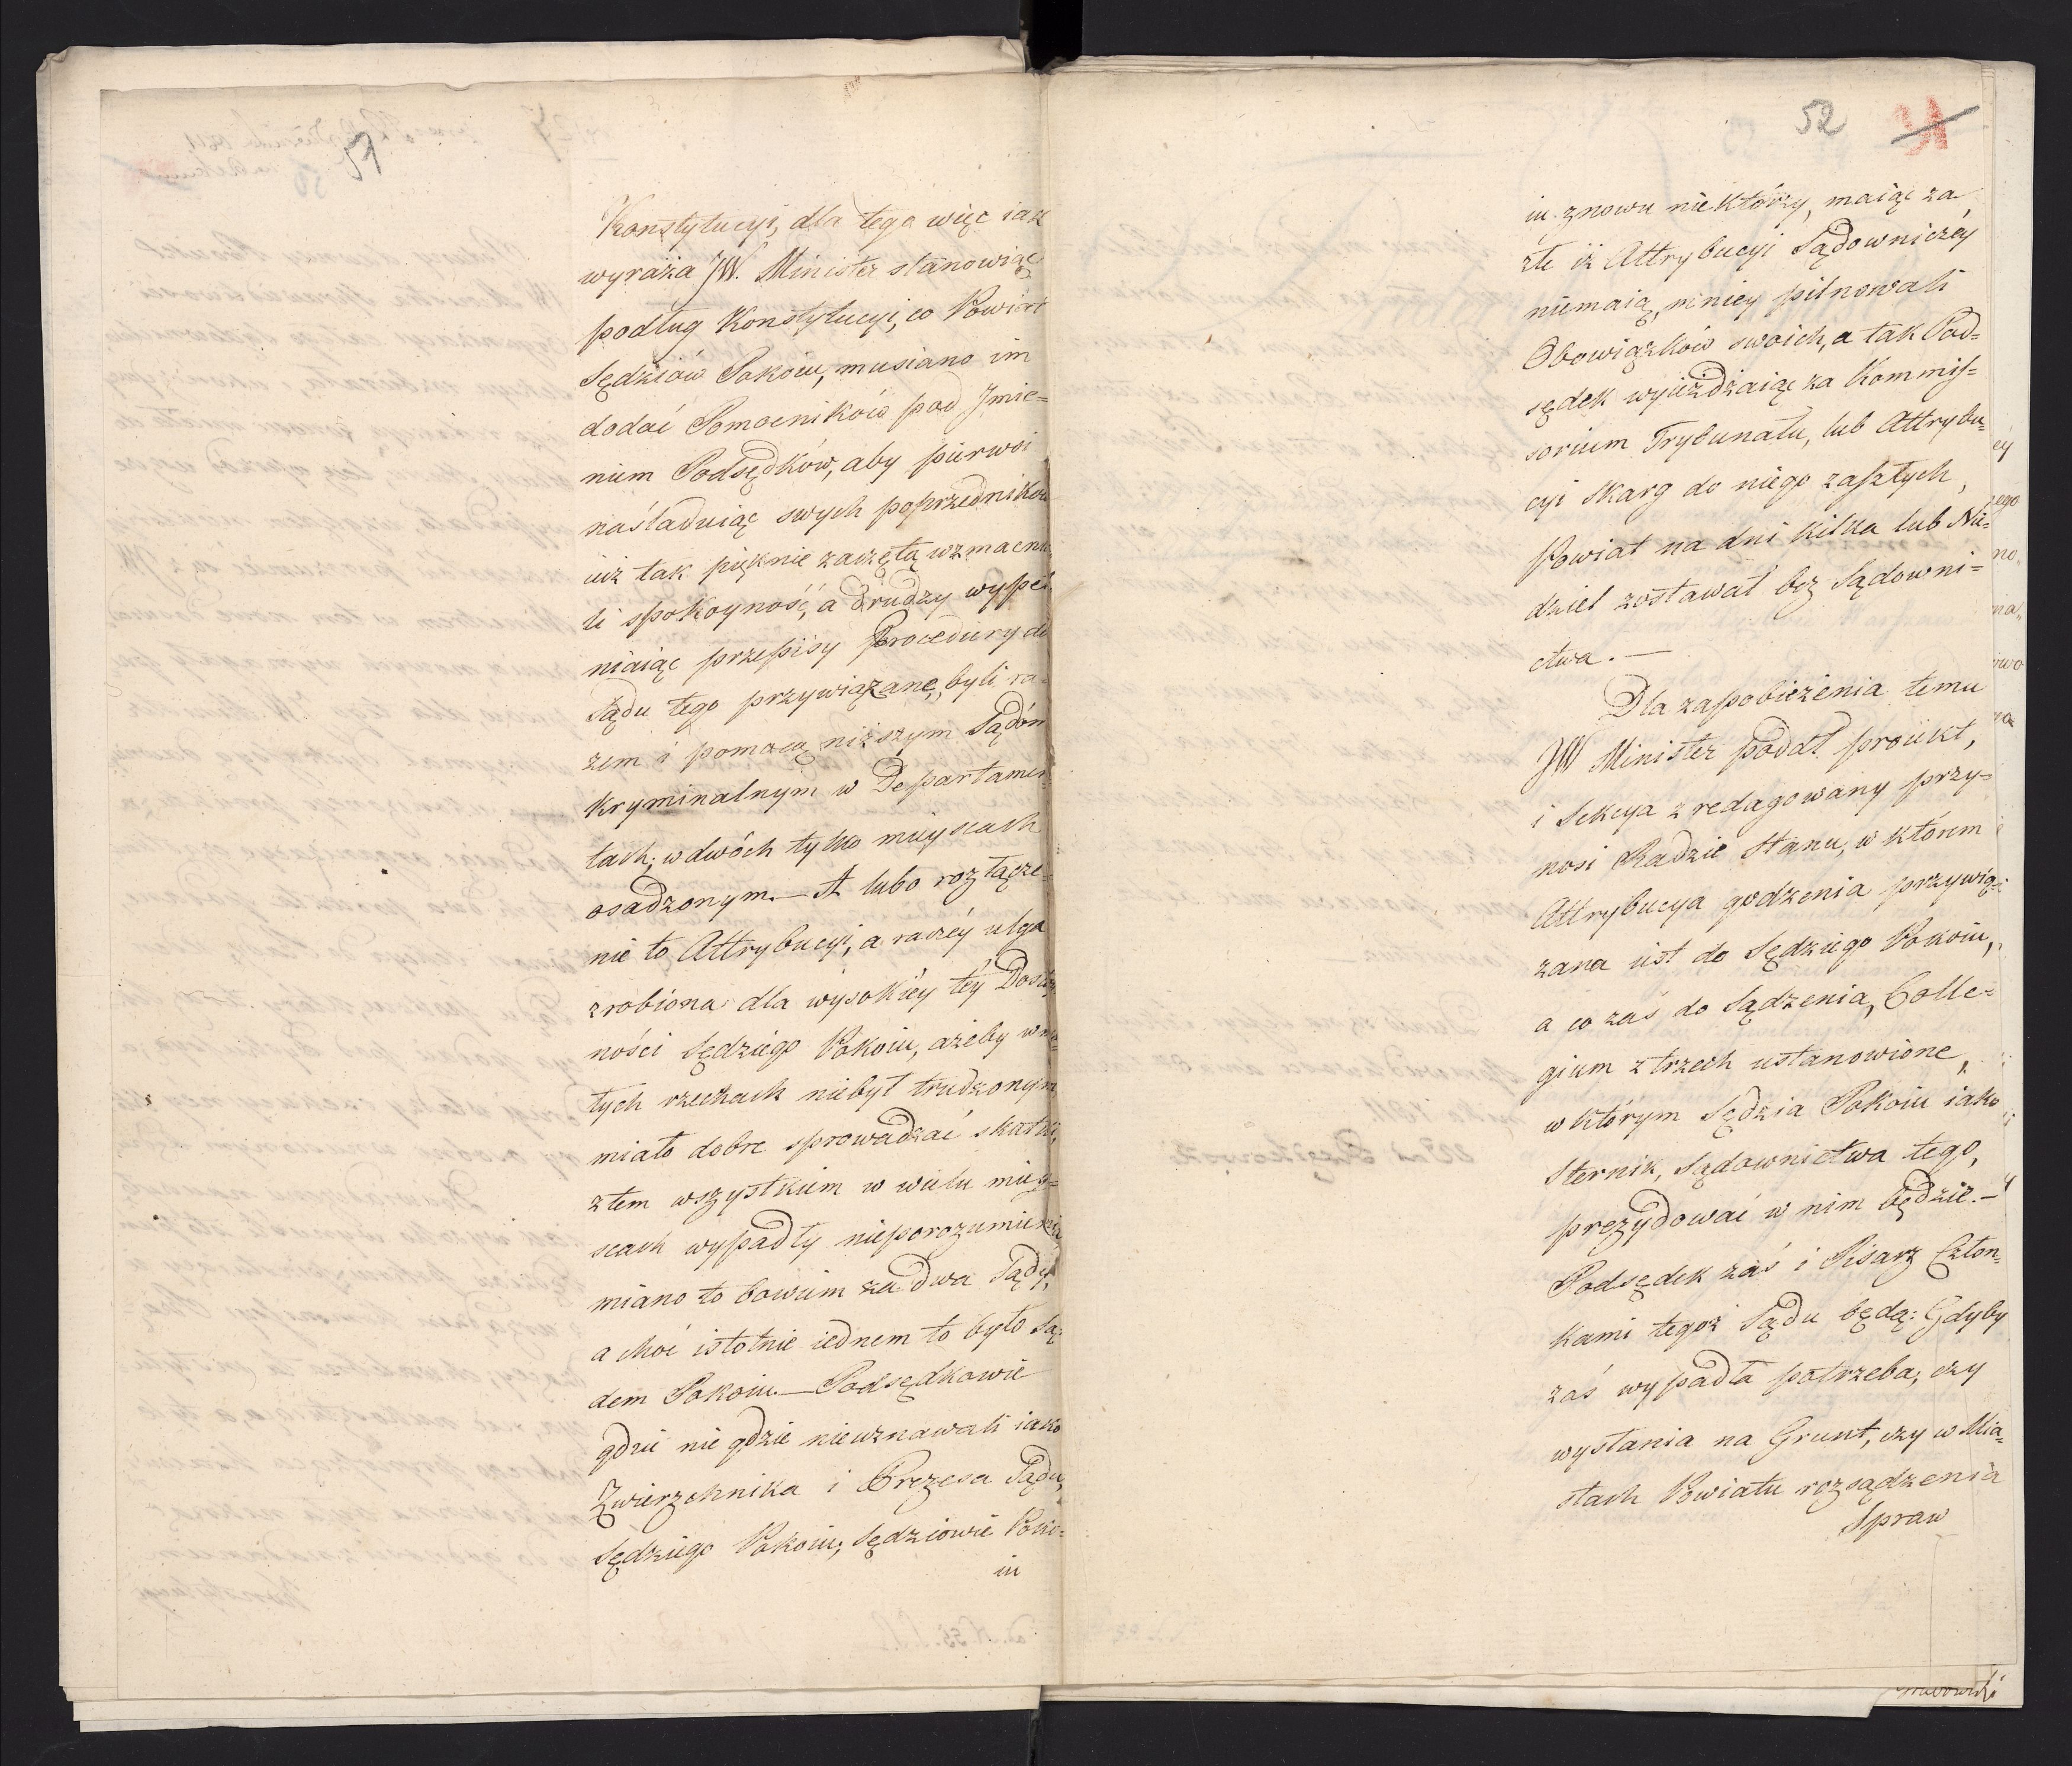 51
Konstytucyi, dla tego więc iak
wyraża JW. Minister stanowiąc
podług Konstytucyi, co Powiat
Sędziów Pokoiu, musiano im
dodać Pomocników pod Jmie=
niem Podsędków, aby pierwsi
naśladuiąc swych poprzedników
iuż tak pięknie zaczętą wzmacnia
li spokoyność, a drudzy wypeł
niaiąc przepisy Procedury do
Sądu tego przywiązane, byli ra=
zem i pomocą niższym Sądóm
Kryminalnym w Departamen=
tach, w dwóch tylko mieyscach
osadzonym. — A lubo rozłącze=
nie to Attrybucyi, a raczéy ulga
zrobiona dla wysokiéy téy Dosto
ności Sędziego Pokoiu, ażeby w ma=
łych rzeczach niebył trudzonym
miało dobre sprowadzać skutki,
z tem wszystkiem w wielu miey=
scach wypadły nieporozumienia,
miano to bowiem za dwa Sądy,
a choć istotnie iednem to było Są=
dem Pokoiu. — Podsędkowie
gdzie nie gdzie nieuznawali iako
Zwierzchnika i Prezesa Sądu,
Sędziego Pokoiu; Sędziowie Poko=
iu
52
iu znowu niektórzy, maiąc za
złe iż Attrybucyi Sądowniczéy
niemaią, mniey pilnowali
Obowiązków swoich, a tak Pod=
sędek wyieżdżaiąc za Kommis=
sorium Trybunału, lub Attrybu=
cyi skarg do niego zaszłych,
Powiat na dni kilka lub Nie=
dziel zostawał bez Sądowni=
ctwa. —
Dla zapobieżenia temu
JW Minister podał proiekt,
i Sekcya zredagowany przy=
nosi Radzie Stanu, w którem
Attrybucya godzenia przywią=
zana iest do Sędziego Pokoiu,
a co zaś do Sądzenia, Colle=
gium z trzech ustanowione,
w którym Sędzia Pokoiu iako
Sternik, Sądownictwa tego,
prezydować w nim będzie. —
Podsędek zaś i Pisarz Człon=
kami tegoż Sądu będą: Gdyby
zaś wypadła potrzeba, czy
wysłania na Grunt, czy w Mia=
stach Powiatu rozsądzenia
Spraw